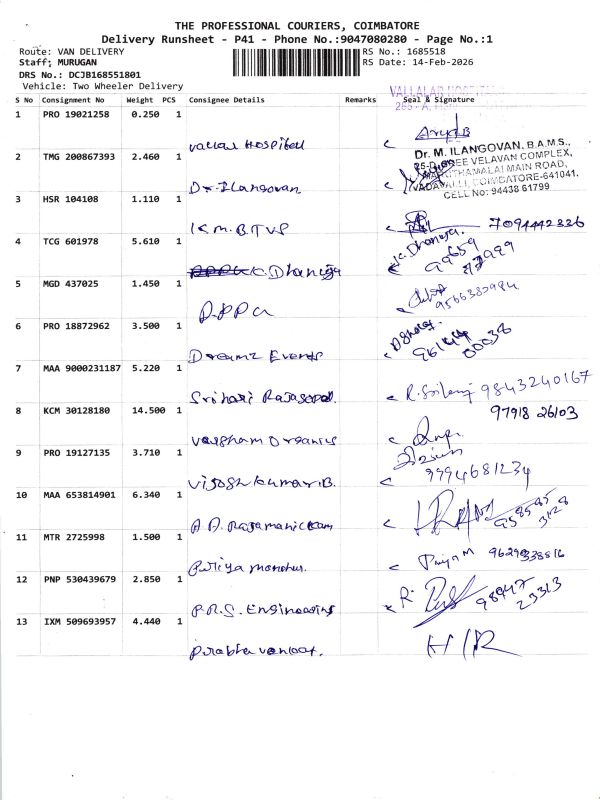 THE PROFESSIONAL COURIERS, COIMBATORE
Delivery Runsheet - P41 - Phone No.:9047080280 - Page No.:1
Route: VAN DELIVERY RS No.: 1685518
Staff; MURUGAN RS Date: 14-Feb-2026
DRS No.: DCJB168551801
Vehicle: Two Wheeler Delivery
VALLALAR HOSPITAL
S No Consignment No Weight PCS Consignee Details Remarks Seal & Signature
1 PRO 19021258 0.250 1
Vallalar Hospital
Dr. M. ILANGOVAN, B.A.M.S.,
2 TMG 200867393 2.460 1
25-D, SREE VELAVAN COMPLEX,
MARUTHAMALAI MAIN ROAD,
VADAVALLI, COIMBATORE-641041.
CELL No: 94438 61799
Dr. Ilangovan
3 HSR 104108 1.110 1
K.M.B.TVS 7094442336
4 TCG 601978 5.610 1
K. Dhaniya
K. Dhanya.
99659
47999
5 MGD 437025 1.450 1
9566380984
6 PRO 18872962 3.500 1
Dreamz Events
96144
00038
7 MAA 9000231187 5.220 1
Srihari Rajagopal. 9843240167
8 KCM 30128180 14.500 1 97918 26103
9 PRO 19127135 3.710 1
9994681234
10 MAA 653814901 6.340 1
A.A. Rajamanickam
11 MTR 2725998 1.500 1
Priya M
12 PNP 530439679 2.850 1
P.R.S. Engineering
R.
98947
23313
13 IXM 509693957 4.440 1
H/R